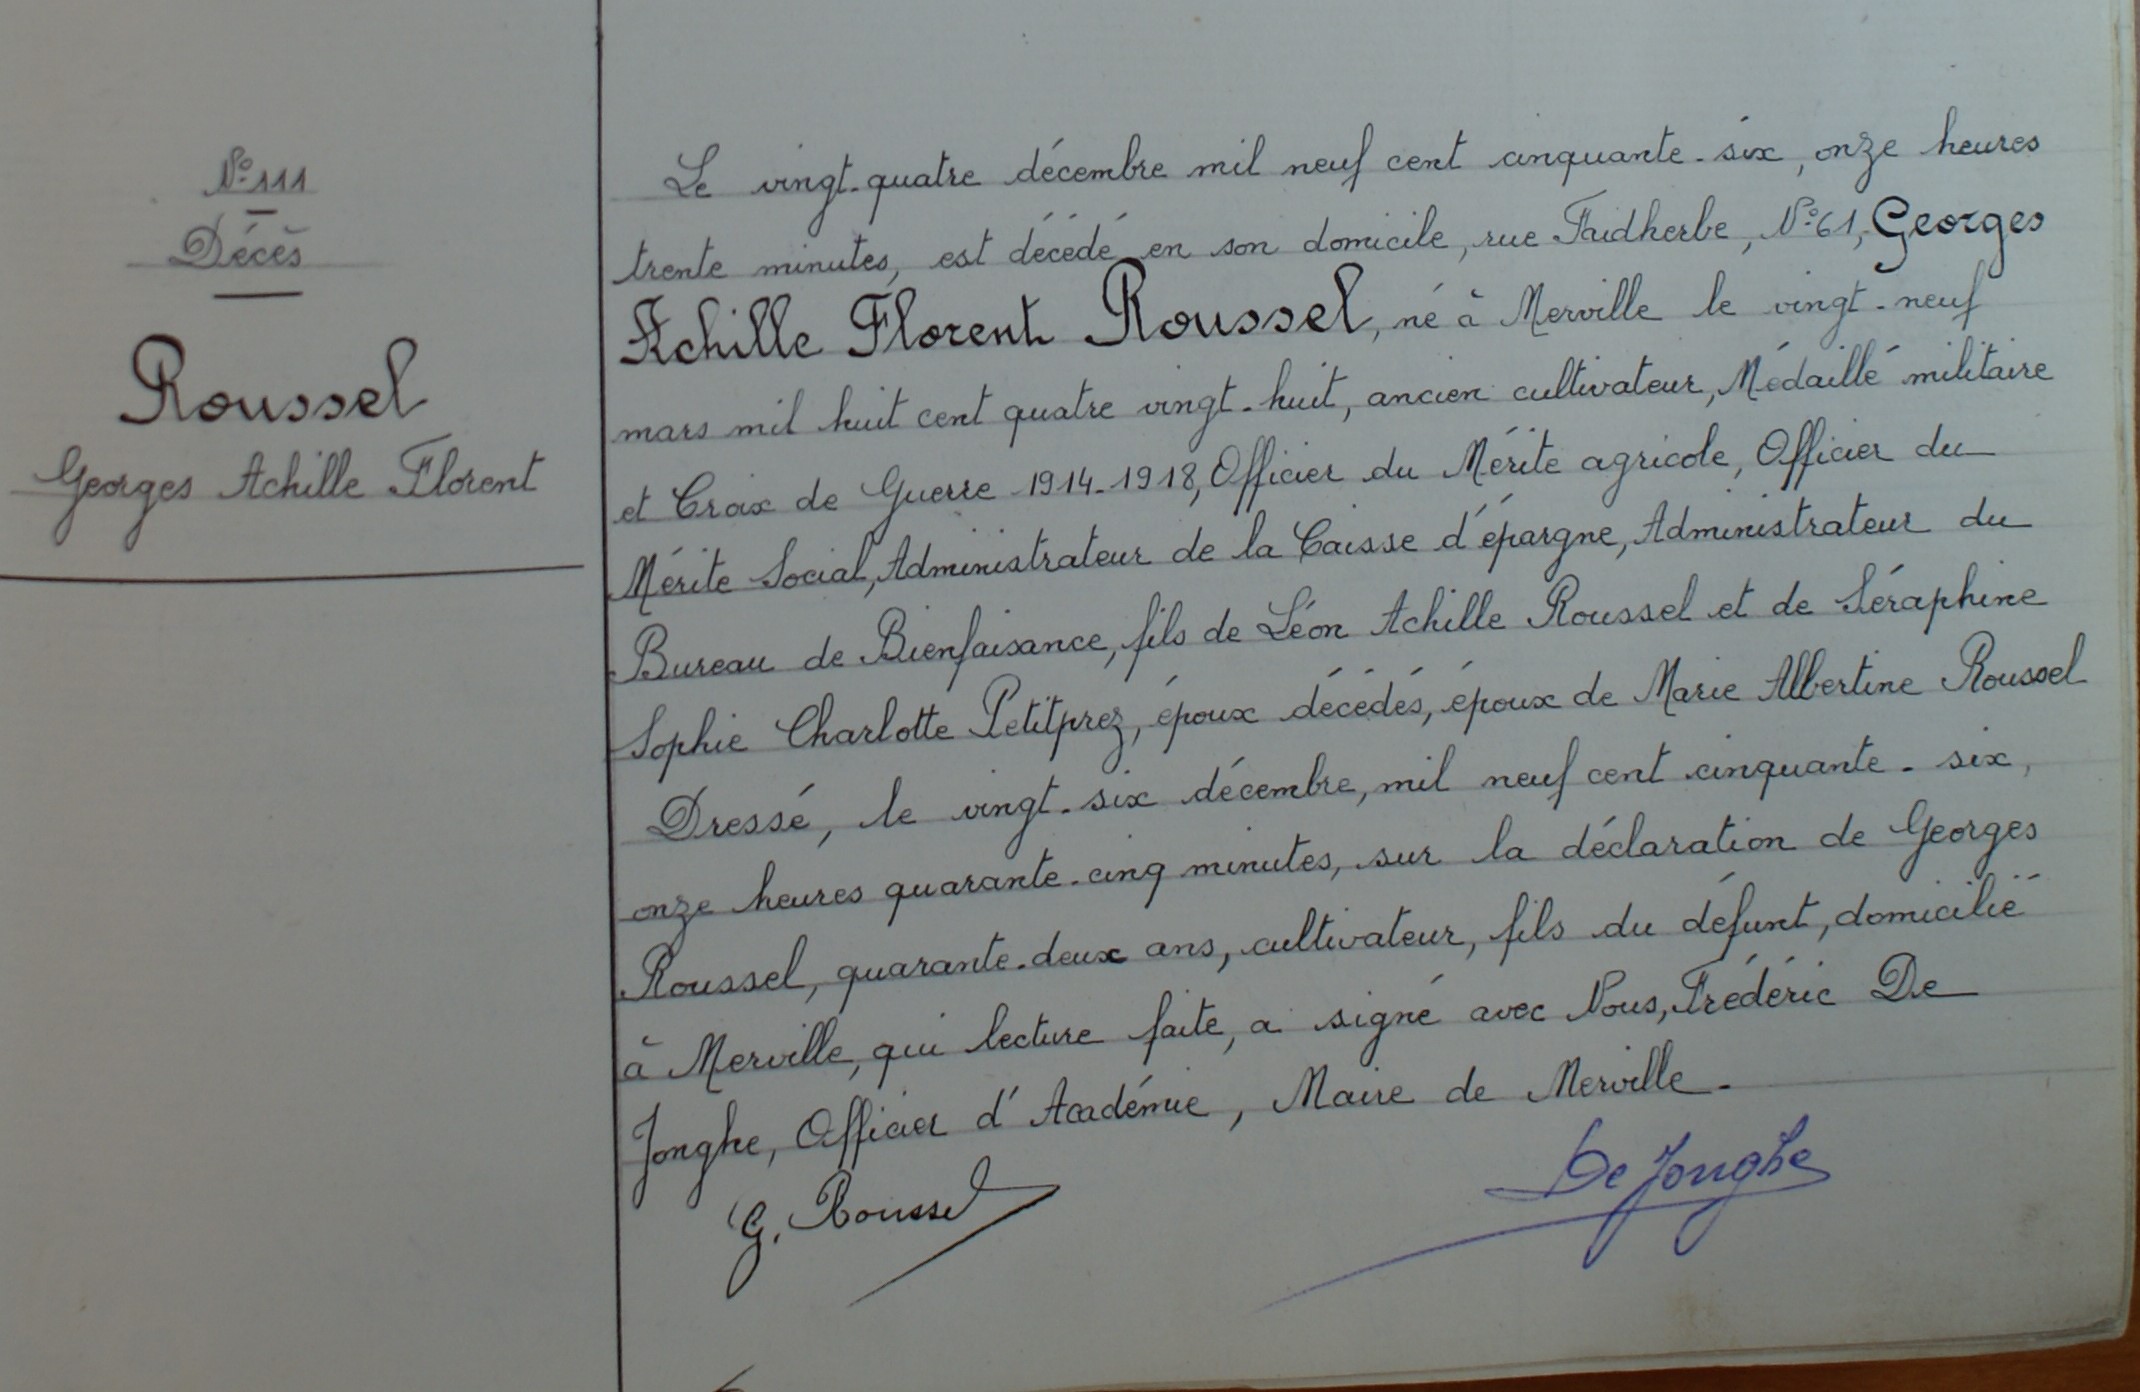 N° 111
Décès
Roussel
Georges Achille Florent
Le vingt-quatre décembre mil neuf cent cinquante-six, onze heures
trente minutes, est décédé en son domicile, rue Faidherbe, N° 61, Georges
Achille Florent Roussel, né à Merville le vingt-neuf
mars mil huit cent quatre vingt-huit, ancien cultivateur, Médaillé militaire
et Croix de Guerre 1914-1918, Officier du Mérite agricole, Officier du
Mérite Social, Administrateur de la Caisse d'épargne, Administrateur du
Bureau de Bienfaisance, fils de Léon Achille Roussel et de Séraphine
Sophie Charlotte Petitprez, époux décédés, époux de Marie Albertine Roussel
Dressé, le vingt-six décembre, mil neuf cent cinquante-six,
onze heures quarante-cinq minutes, sur la déclaration de Georges
Roussel, quarante-deux ans, cultivateur, fils du défunt, domicilié
à Merville, qui lecture faite, a signé avec Nous, Frédéric De
Jonghe, Officier d'Académie, Maire de Merville.
G. Roussel
De Jonghe